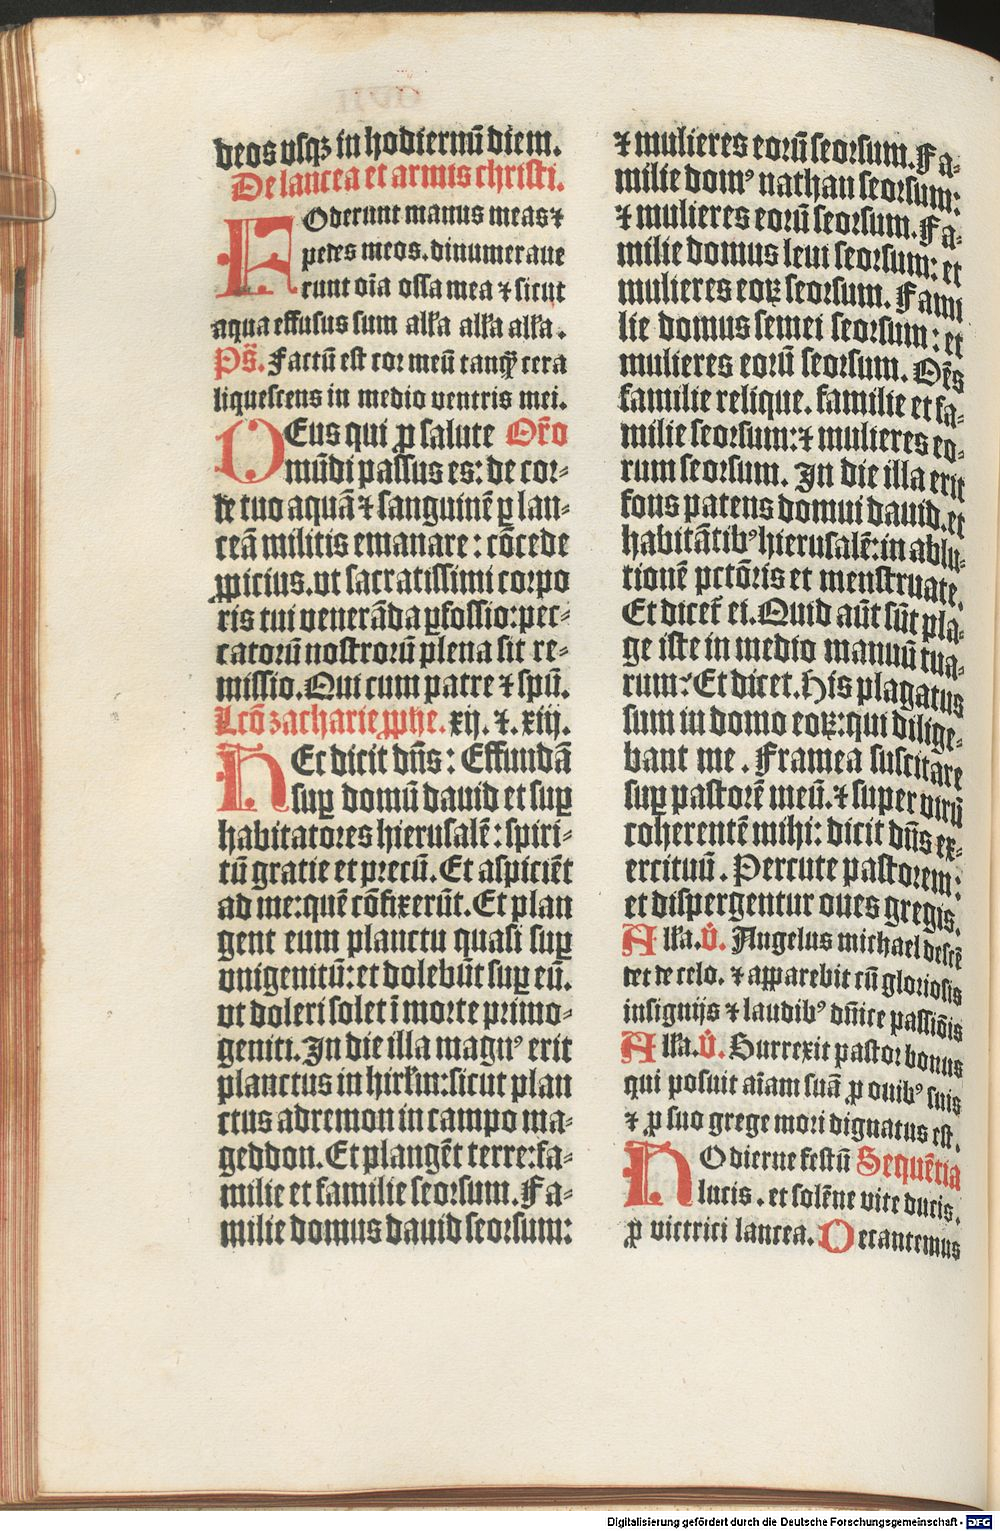 deos vsqꝫ in hodiernū diem.
De lancea et armis christi.
FOderunt manus meas ⁊
pedes meos. dinumeraue
runt oīa ossa mea ⁊ sicut
aqua effusus sum all'a all'a all'a.
Ps̄. Factū est cor meū tanqȝ cera
liquescens in medio ventris mei.
DEus qui ꝓ salute Oro̅
mūdi passus es: de cor⸗
de tuo aquā ⁊ sanguinē ꝑ lan⸗
ceā militis emanare: cōcede
ꝓpicius. vt sacratissimi corpo
ris tui venerāda ꝑfossio: pec⸗
catorū nostrorū plena sit re⸗
missio. Qui cum patre ⁊ spū.
Lcō zacharie ꝓphe. xij. ⁊. xiij.
HEc dicit dn̄s: Effundā
suꝑ domū dauid et suꝑ
habitatores hierusalē: spiri⸗
tū gratie et precū. Et aspiciēt
ad me: quē cōfixerūt. Et plan
gent eum planctu quasi suꝑ
vnigenitū: et dolebūt suꝑ eū.
vt doleri solet ī morte primo⸗
geniti. In die illa magnꝰ erit
planctus in hirl'm: sicut plan
ctus adremon in campo ma⸗
geddon. Et plangēt terre: fa⸗
milie et familie seorsum. Fa⸗
milie domus dauid seorsum:
⁊ mulieres eorū seorsum. Fa⸗
milie domꝰ nathan seorsum:
⁊ mulieres eorū seorsum. Fa⸗
milie domus leui seorsum: et
mulieres eoꝝ seorsum. Fami
lie domus semei seorsum: et
mulieres eorū seorsum. Oēs
familie relique. familie et fa⸗
milie seorsum: ⁊ mulieres eo⸗
rum seorsum. In die illa erit
fons patens domui dauid. et
habitātibꝰ hierusalē: in ablu⸗
tionē pctōris et menstruate.
Et dicet' ei. Quid aūt sūt pla⸗
ge iste in medio manuū tua⸗
rum? Et dicet. His plagatus
sum in domo eoꝝ: qui dilige⸗
bant me. Framea suscitare
suꝑ pastorē meū. ⁊ super virū
coherentē mihi: dicit dn̄s ex⸗
ercituū. Percute pastorem:
et dispergentur oues gregis.
All'a. V̊. Angelus michael descē
det de celo. ⁊ apparebit cū gloriosis
insignijs ⁊ laudibꝰ dn̄ice passiōis
All'a. V̊. Surrexit pastor bonus
qui posuit aīam suā ꝓ ouibꝰ suis
⁊ ꝓ suo grege mori dignatus est.
HOdierne festū Sequētia
lucis. et solēne vite ducis.
ꝓ victrici lancea. Decantemus
Digitalisierung gefördert durch die Deutsche Forschungsgemeinschaft - DFG